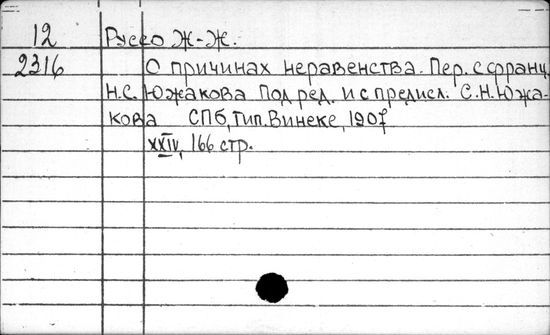 12 Руссо Ж-Ж.
2316 О причинах неравенства. Пер. с франц.
Н.С. Южакова Под ред. и с предисл. С.Н. Южа-
кова СПб, Тип. Винеке, 1907
XXIV, 166 стр.